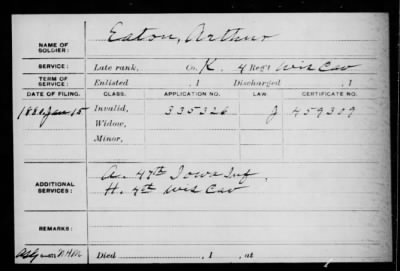 NAME OF SOLDIER: Eaton, Arthur
SERVICE: Late rank, Co. K. 4 Reg't Wis Cav
TERM OF SERVICE: Enlisted , 1 Discharged , 1
DATE OF FILING. CLASS. APPLICATION NO. LAW. CERTIFICATE NO.
1880 Jan 15 Invalid, 335326 J 459309
Widow,
Minor,
ADDITIONAL SERVICES: A. 47th Iowa Inf.
H. 4th Wis Cav
REMARKS:
Died , 1 , at